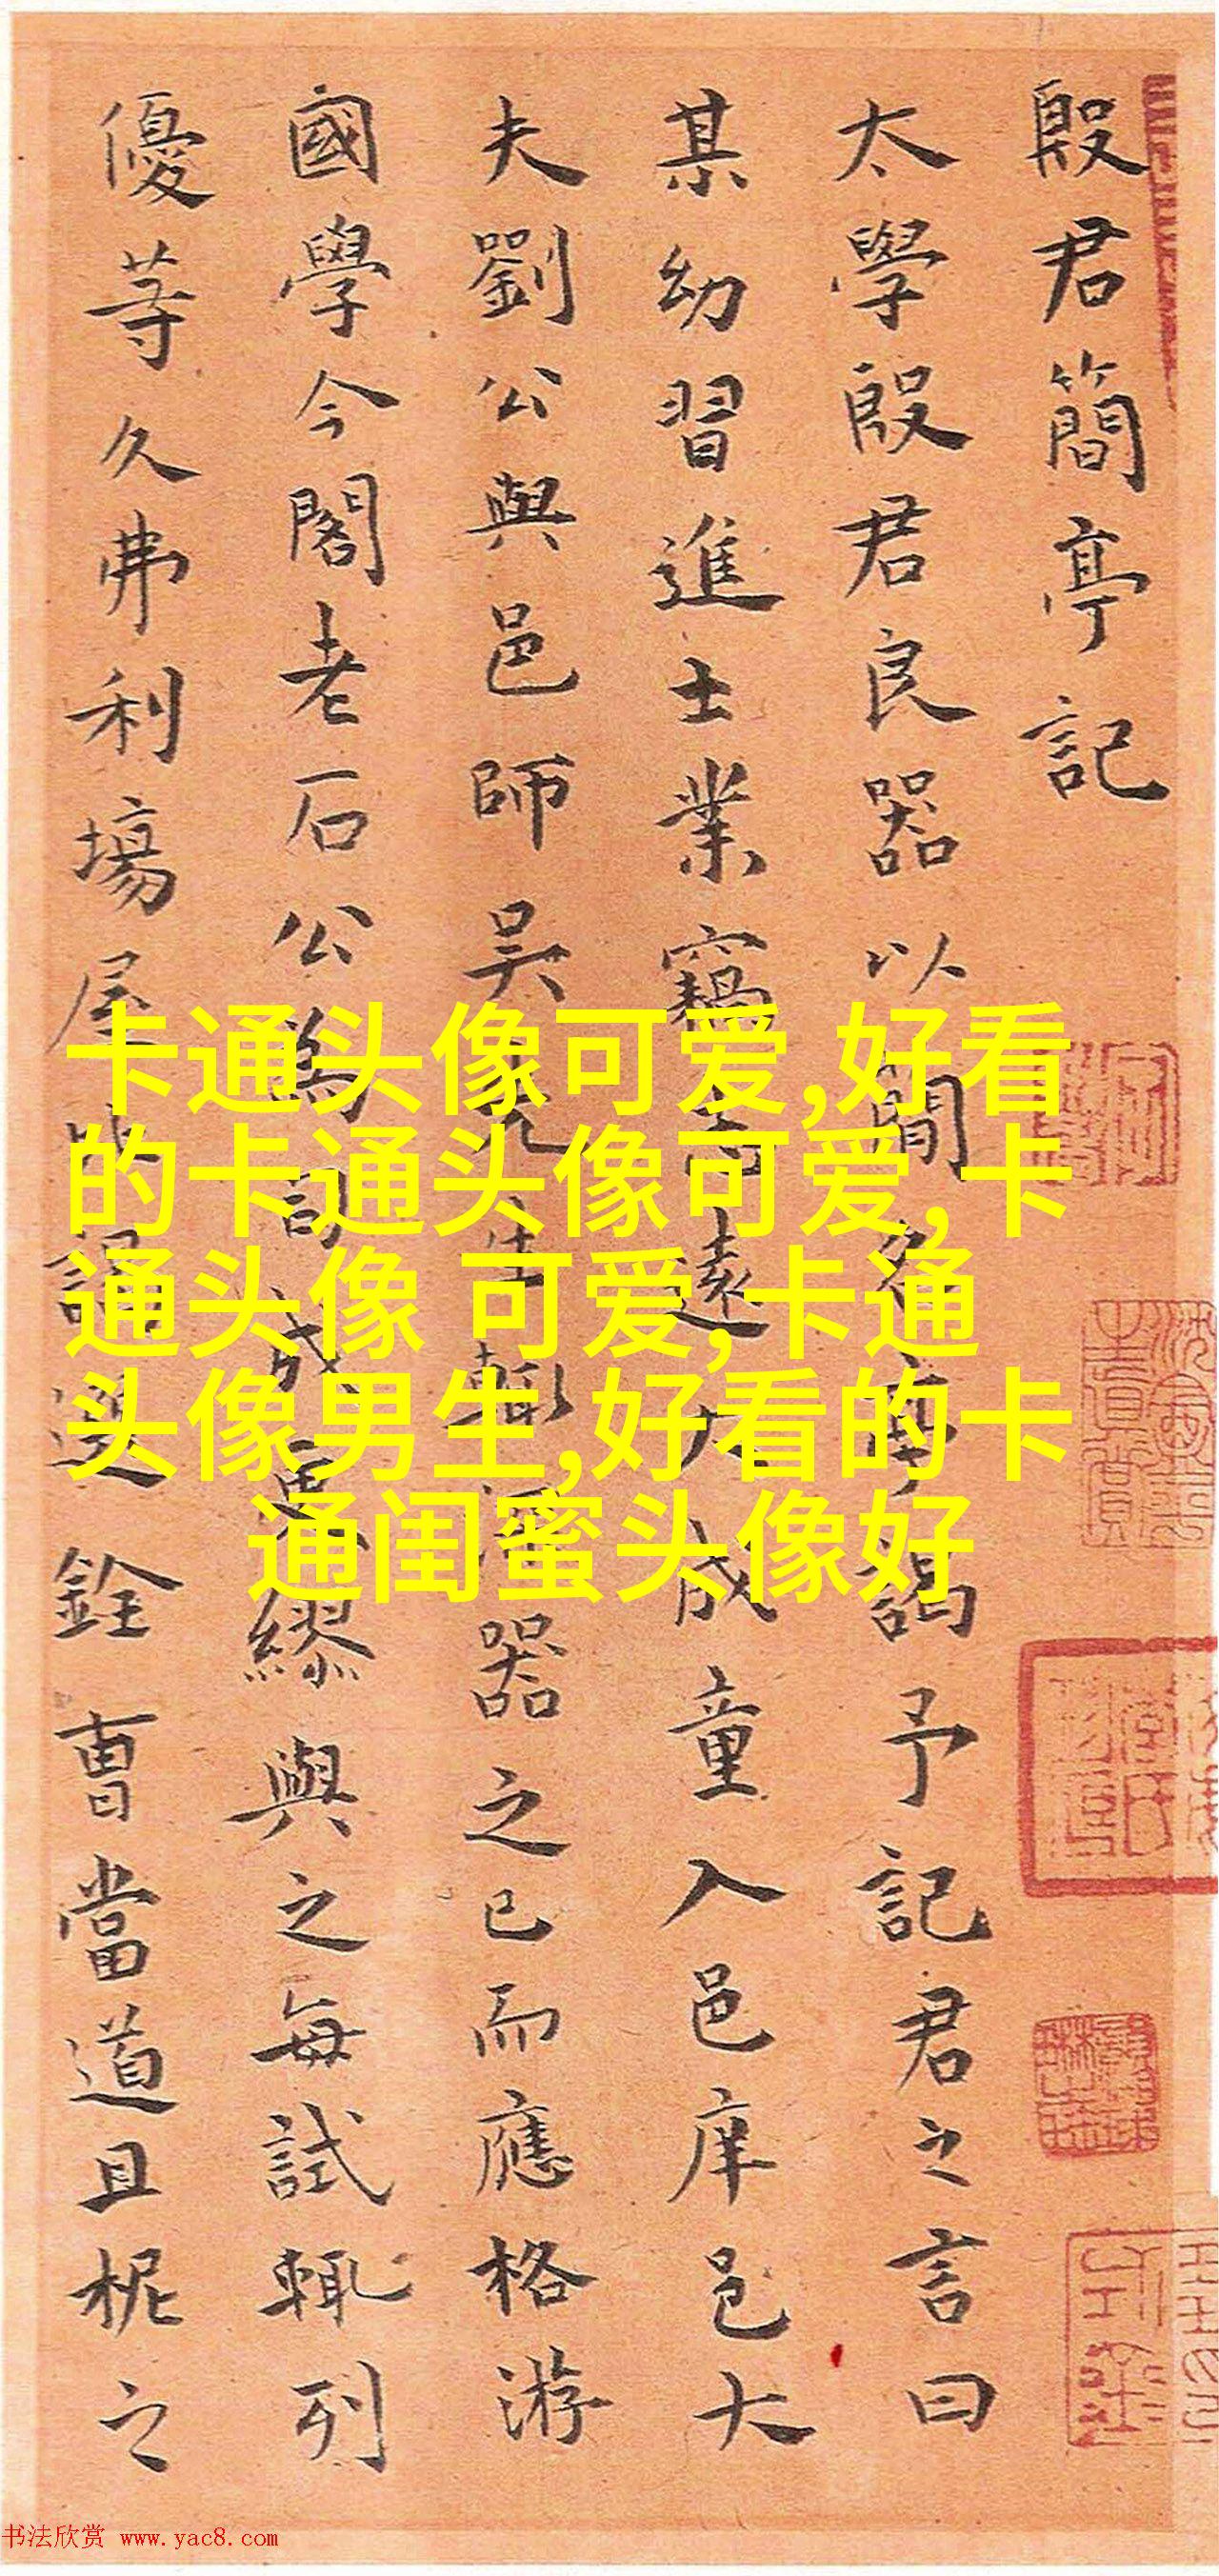 殷君簡亭記
太學殷君良器以簡名亭謁予記君之言曰
某幼習進士業竊喜遠大成童入邑庠邑大
夫劉公與邑師吴先生輒器之已而應格游
國學今閣老石公為司成惠繆與之每試輒列
優等久弗利場屋謁選銓曹當道且柅之
卡通头像可爱,好看
的卡通头像可爱,卡
通头像 可爱,卡通
头像男生,好看的卡
通闺蜜头像好
书法欣赏 www.yac8.com